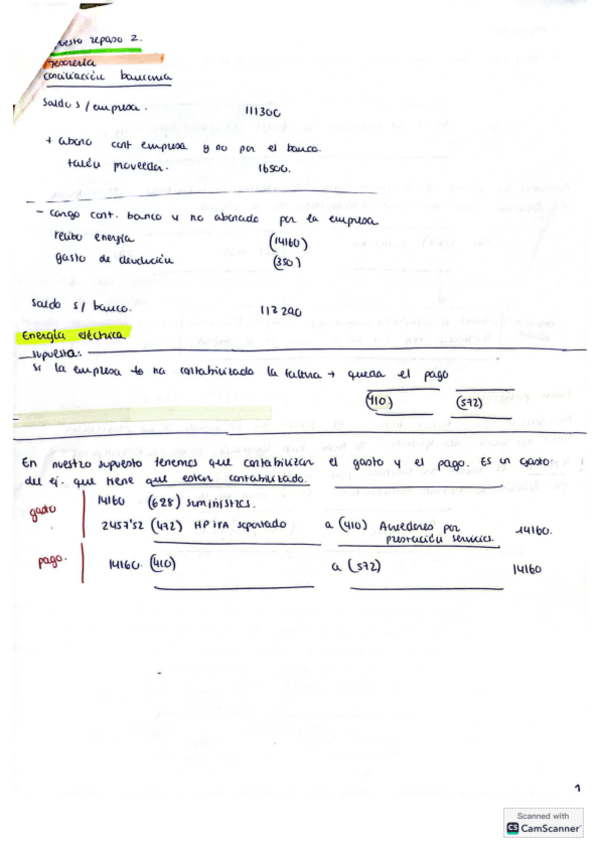 uesto repaso 2.
Tesorería
conciliación bancaria
Saldo s/empresa. 111300
+ abono cont empresa y no por el banco.
talón proveedor. 16500.
- cargo cont. banco y no abonado por la empresa
recibo energía (14160)
gasto de devolución (350)
Saldo s/ banco. 113290
Energía eléctrica
supuesta:
si la empresa ha contabilizado la factura → queda el pago
(410) (572)
En nuestro supuesto tenemos que contabilizar el gasto y el pago. Es un gasto
del ej. que tiene que estar contabilizado.
gasto 14160 (628) Suministros.
2457'52 (472) HP IVA soportado a (410) Acreedores por prestación servicios. 14160.
pago. 14160. (410) a (572) 14160
1
Scanned with
CS CamScanner